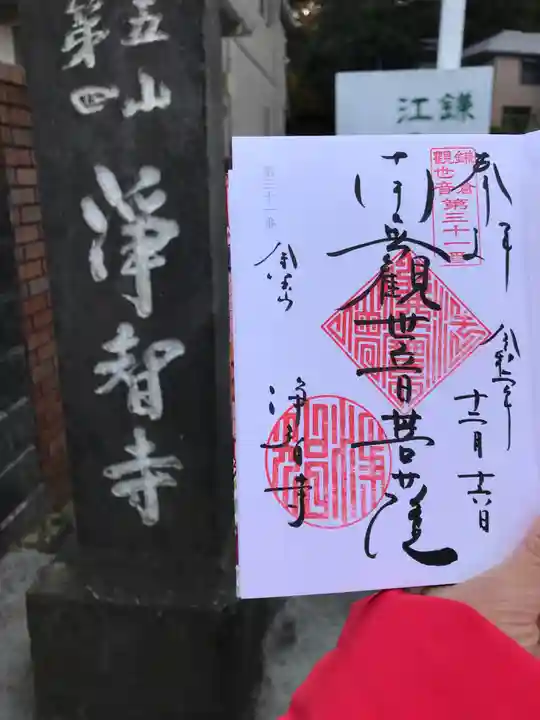 五山
第四
浄智寺
鎌
江
鎌倉
観世音
第三十一番
奉拝
十一面観世音菩薩
令和二年
十二月十六日
第三十一番
金宝山
浄智寺